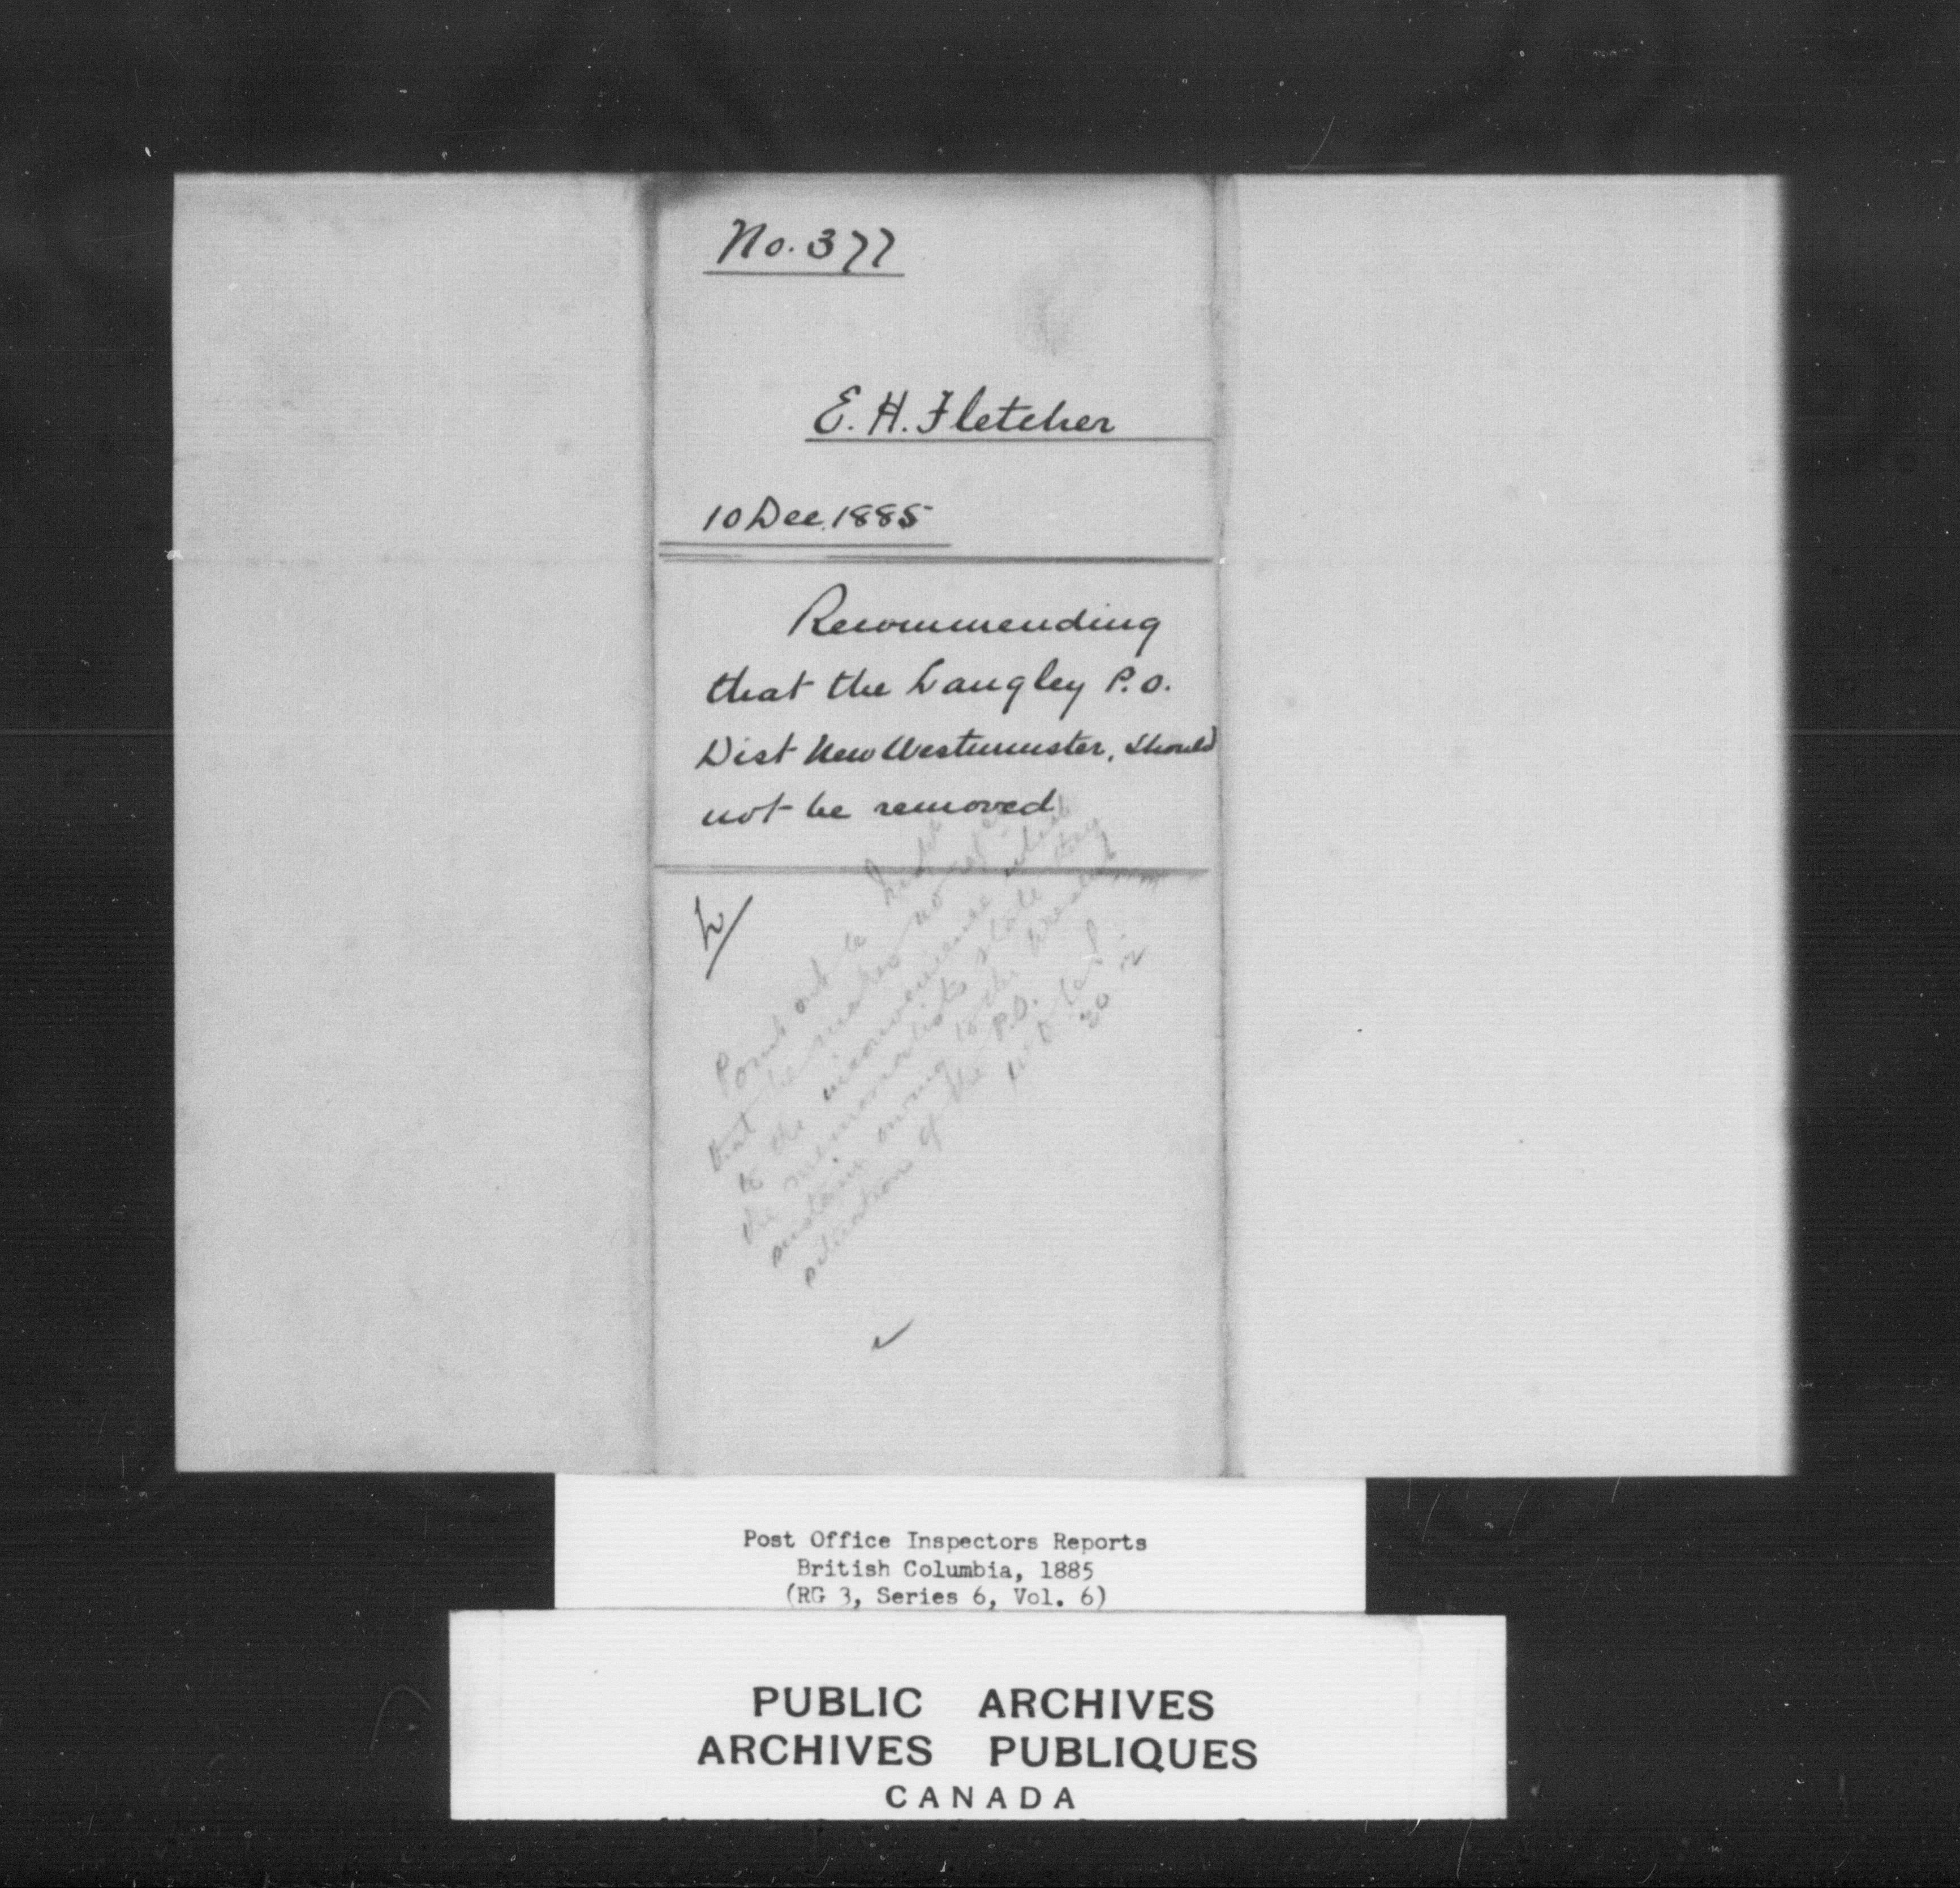 No. 377
E. H. Fletcher
10 Dec. 1885
Recommending
that the Langley P.O.
Dist New Westminster, should
not be removed
Point out to
that he makes no ref
to the inconvenience which
the memorialists state they
sustain owing to the present
situation of the P.O.
Post Office Inspectors Reports
British Columbia, 1885
(RG 3, Series 6, Vol. 6)
PUBLIC ARCHIVES
ARCHIVES PUBLIQUES
CANADA